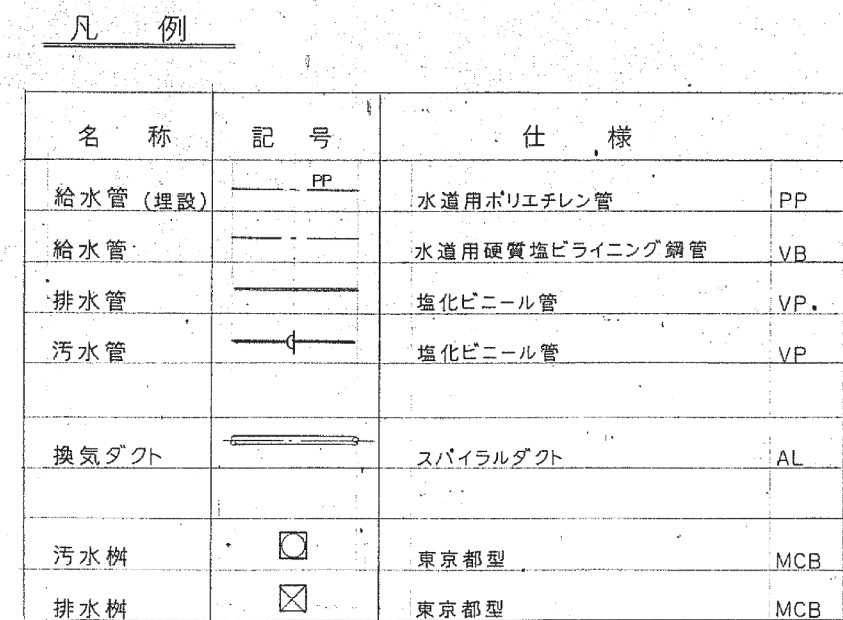 凡 例
名 称 記 号 仕 様
給水管 (埋設) PP 水道用ポリエチレン管 PP
給水管 水道用硬質塩ビライニング鋼管 VB
排水管 塩化ビニール管 VP.
汚水管 塩化ビニール管 VP
換気ダクト スパイラルダクト AL
汚水桝 東京都型 MCB
排水桝 東京都型 MCB